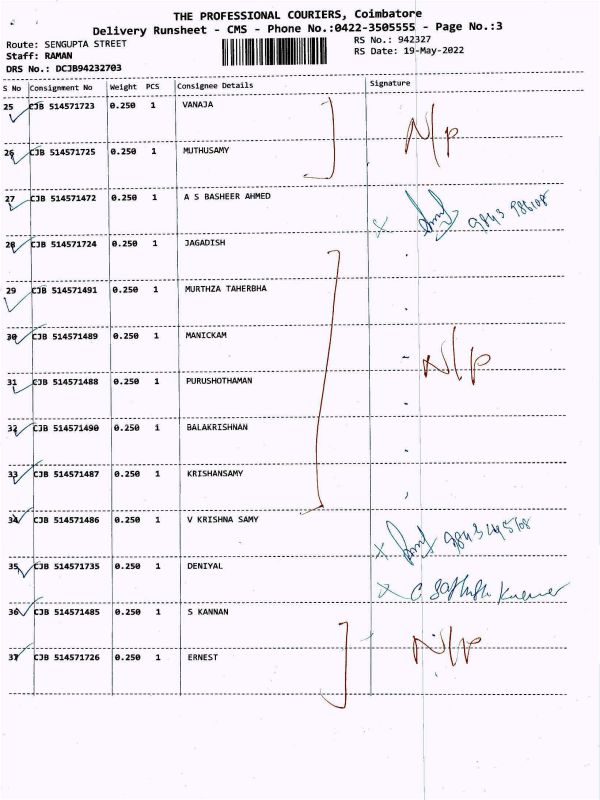 THE PROFESSIONAL COURIERS, Coimbatore
Delivery Runsheet - CMS - Phone No.:0422-3505555 - Page No.:3
Route: SENGUPTA STREET RS No.: 942327
Staff: RAMAN RS Date: 19-May-2022
DRS No.: DCJB94232703
S No Consignment No Weight PCS Consignee Details Signature
25 CJB 514571723 0.250 1 VANAJA
N/p
26 CJB 514571725 0.250 1 MUTHUSAMY
27 CJB 514571472 0.250 1 A S BASHEER AHMED x
28 CJB 514571724 0.250 1 JAGADISH
29 CJB 514571491 0.250 1 MURTHZA TAHERBHA
30 CJB 514571489 0.250 1 MANICKAM
N/p
31 CJB 514571488 0.250 1 PURUSHOTHAMAN
32 CJB 514571490 0.250 1 BALAKRISHNAN
33 CJB 514571487 0.250 1 KRISHANSAMY
34 CJB 514571486 0.250 1 V KRISHNA SAMY x
35 CJB 514571735 0.250 1 DENIYAL x
36 CJB 514571485 0.250 1 S KANNAN
N/p
37 CJB 514571726 0.250 1 ERNEST